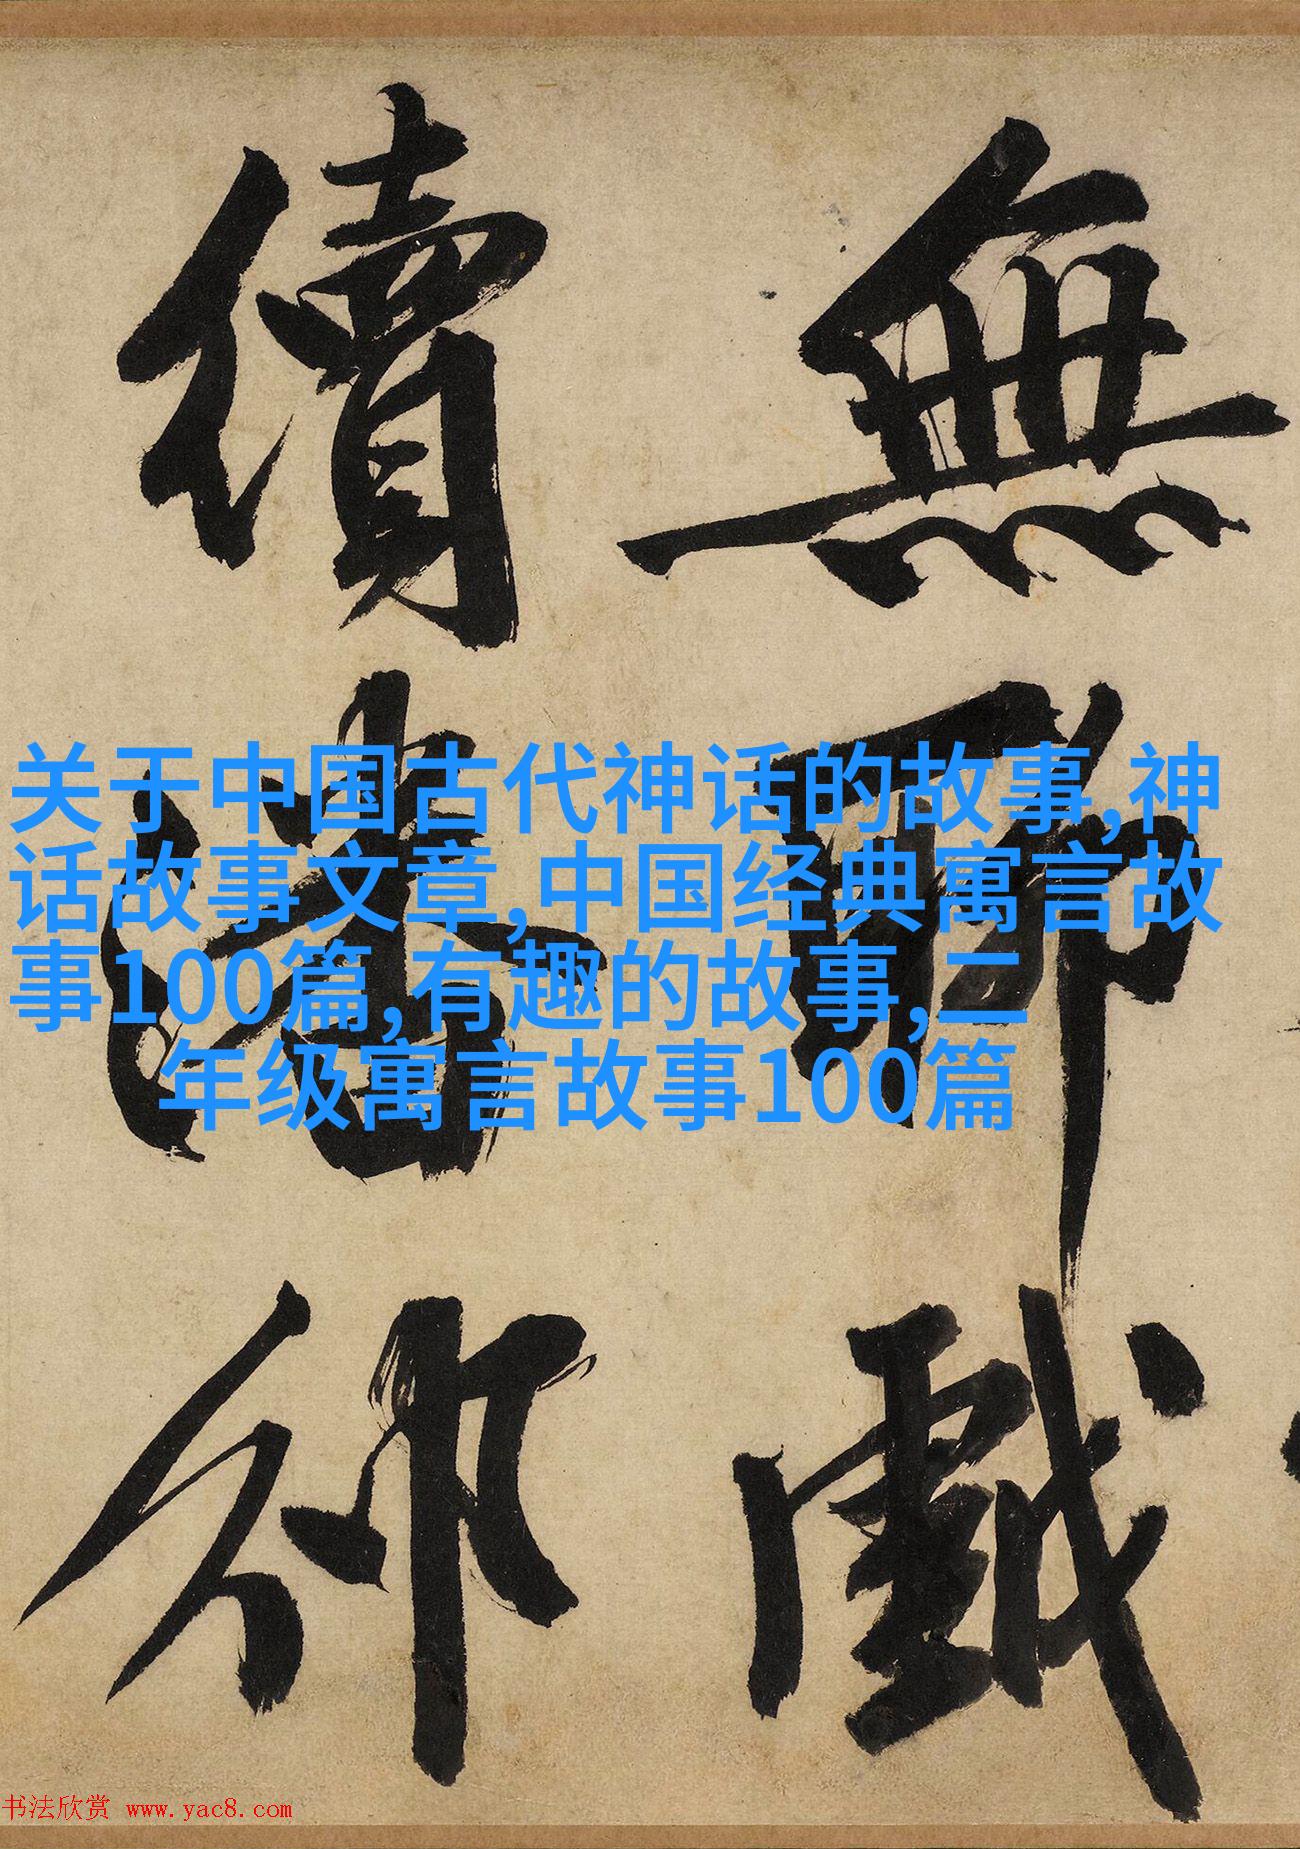 無聊戲
續潘邠
关于中国古代神话的故事,神
话故事文章,中国经典寓言故
事100篇,有趣的故事,二
年级寓言故事100篇
书法欣赏 www.yac8.com